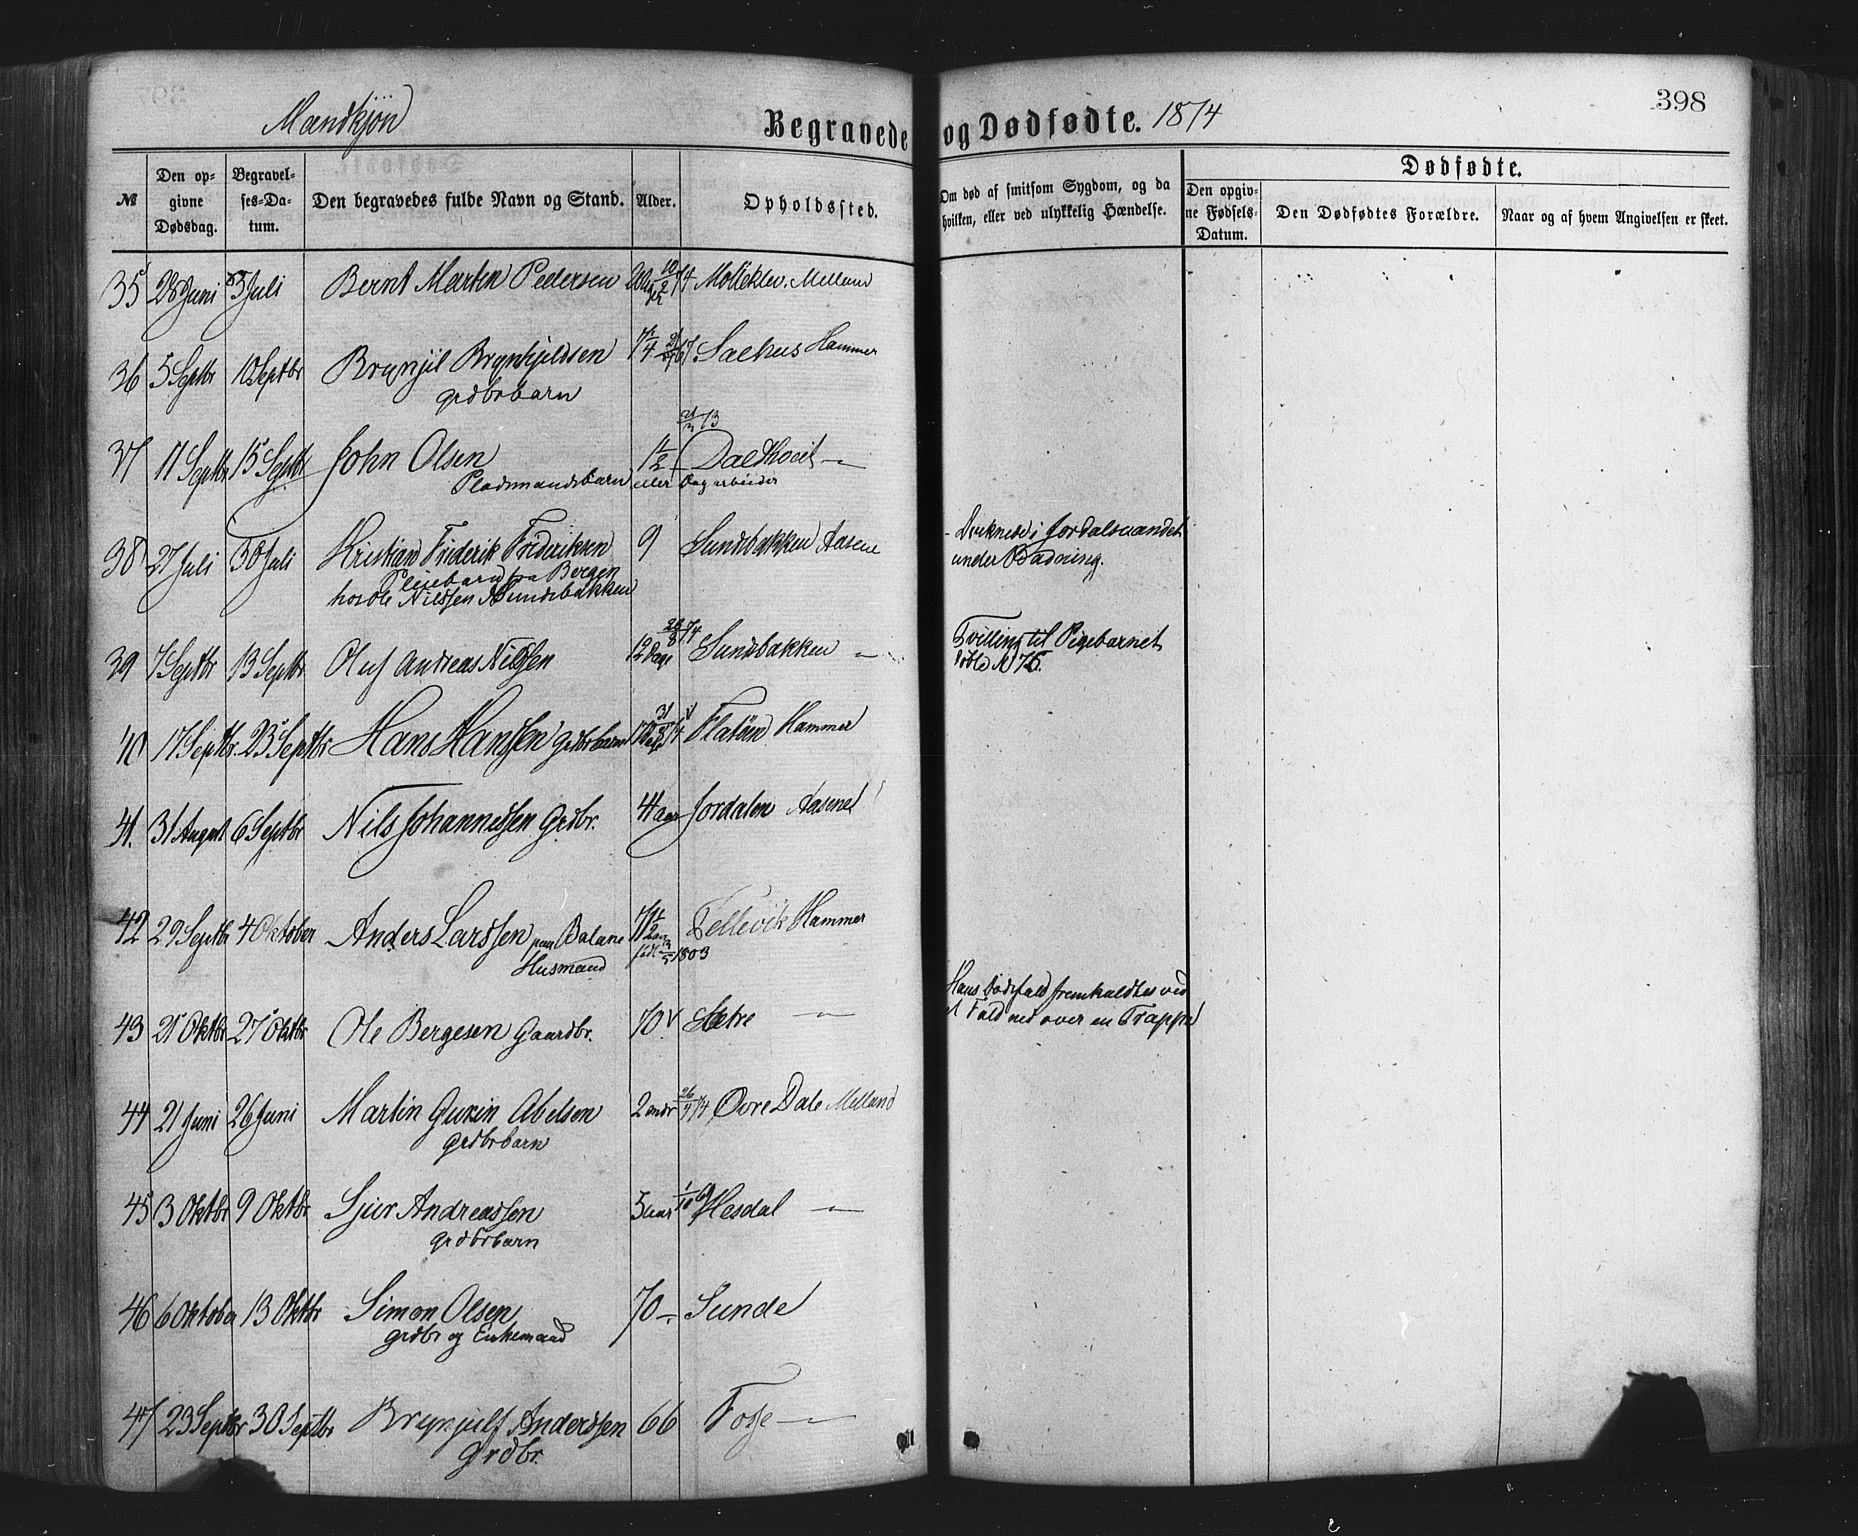 Mandkjøn
Begravede og Dødfødte. 1874
398
№ Den opgivne Dødsdag. Begravelses-Datum. Den begravedes fulde Navn og Stand. Alder. Opholdssted. Om død af smitsom Sygdom, og da hvilken, eller ved ulykkelig Hændelse.
Dødfødte.
Den opgivne Fødsels-Datum. Den Dødfødtes Forældre. Naar og af hvem Angivelsen er skeet.
35 28 Juni 5 Juli Bernt Martin Pedersen 10/2 74 Melland
36 5 Septbr 10 Septbr Brynjil Brynhjildsen 7 1/4 67 Sælhus Hammer
grdbrbarn
37 11 Septbr 15 Septbr John Olsen 1 1/2 21/3 73 Dalthveit —
Pladsmandsbarn eller Dagarbeider
38 27 Juli 30 Juli Kristian Friderik Frideriksen 9 Sundsbakken Aasene
Pleiebarn fra Bergen
hos Ole Nilssen Sundsbakken
- Druknede i Jordalsvandet
under Badning.
39 7 Septbr 13 Septbr Oluf Andreas Nilssen 12 Dage 26/8 74 Sundbakken —
Tvilling til Pigebarnet
døbte N 75.
40 17 Septbr. 23 Septbr Hans Hanssen grdbrbarn 17 Dage 31/8 74 Flatøen Hammer
41. 31 August 6 Septbr Nils Johannessen Grdbr. 44 aar Jordalen Aasene
42 29 Septbr 4 Oktober Anders Larssen paa Balane 71 1/2 Tellevik Hammer
Husmand født 1803
43 21 Oktbr 27 Oktbr Ole Bergesen Gaardbr. 70 Sætre —
Hans Dødsfald fremkaldtes ved
et Fald ned over en Trappe
44 21 Juni 26 Juni Martin Gurin Abelsen 2 mdr 26/4 74 Øvre Dale Melland
grdbrbarn
45 3 Oktbr 9 Oktbr Sjur Andreassen 5 aar 1/10 69 Hesdal —
grdbrbarn
46 6 Oktober 13 Oktbr Simon Olsen 70 — Sunde
grdbr og Enkemand
47 23 Septbr 30 Septbr Brynjulf Anderssen 66 Fosse —
Grdbr.